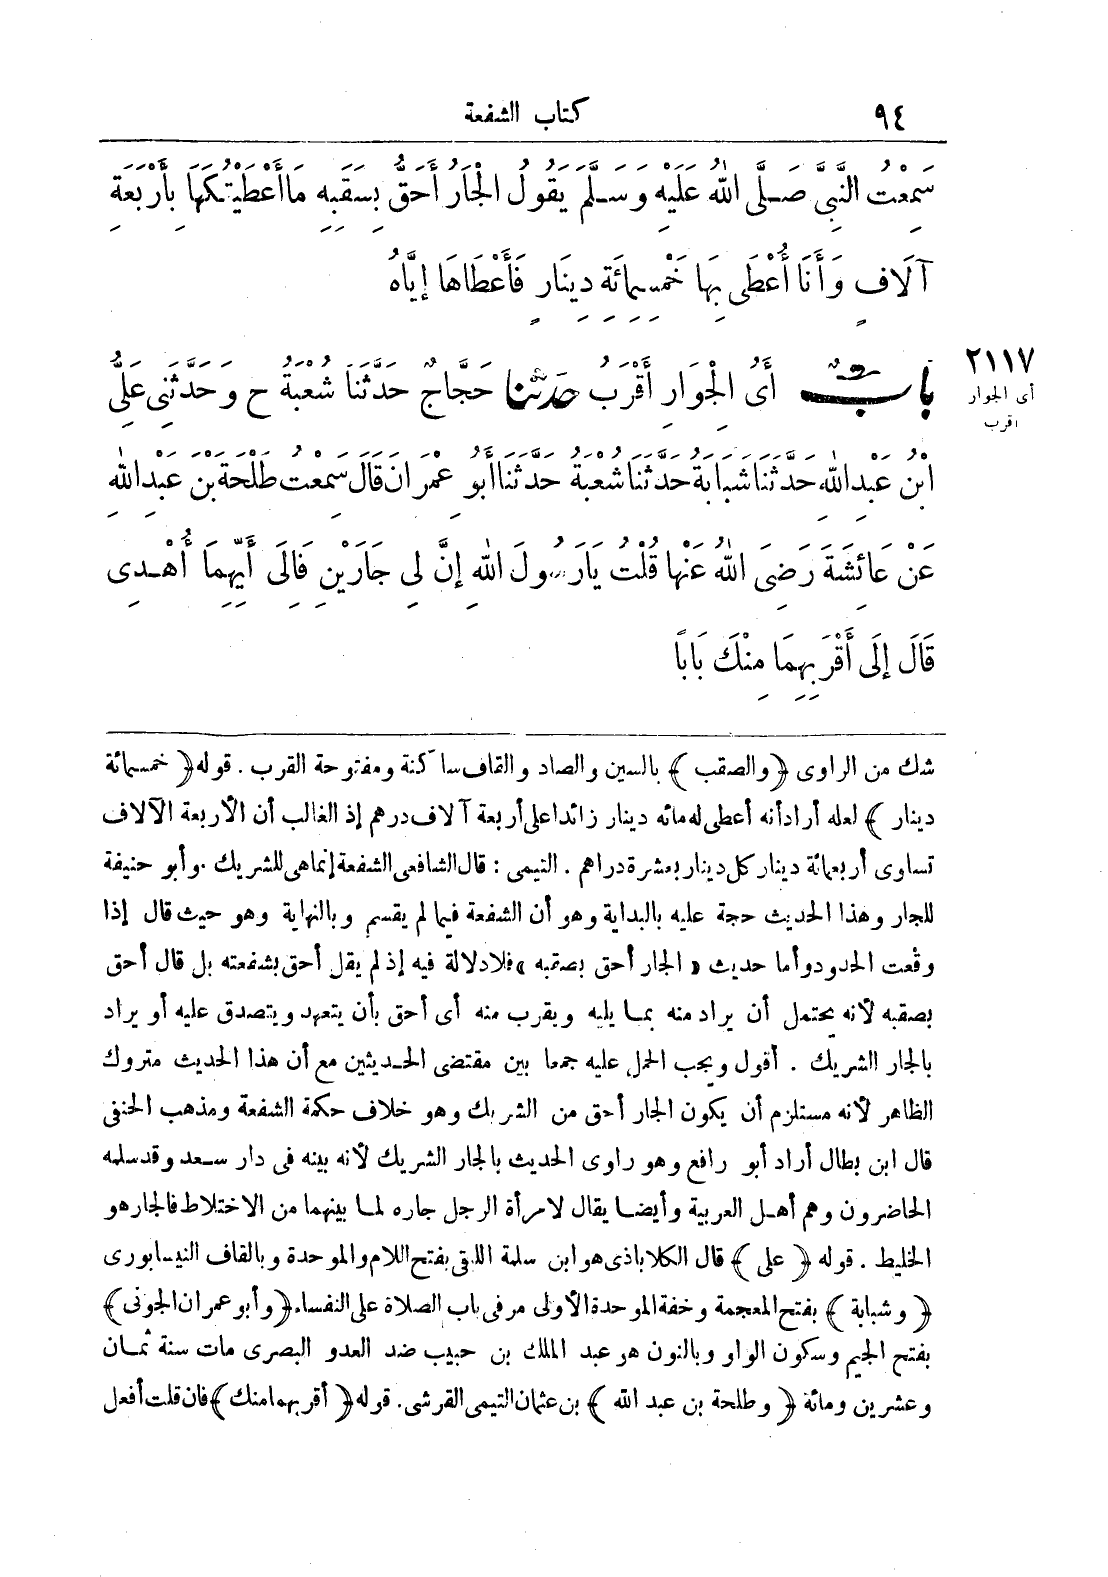 ٩٤
كتاب الشفعة
سَمِعْتُ النَّبِىَّ صَلَّى اللهُ عَلَيْهِ وَسَلَّمَ يَقُولُ الْجَارُ أَحَقُّ بِسَقَبِهِ مَا أَعْطَيْتُكَهَا بِأَرْبَعَةِ
آلَافٍ وَأَنَا أُعْطَى بِهَا خَمْسَمِائَةِ دِينَارٍ فَأَعْطَاهَا إِيَّاهُ
٢١١٧
أى الجوار
اقرب
بابٌ أَىُّ الْجِوَارِ أَقْرَبُ حدثنا حَجَّاجٌ حَدَّثَنَا شُعْبَةُ ح وَحَدَّثَنِى عَلِىُّ
ابْنُ عَبْدِ اللهِ حَدَّثَنَا شَبَابَةُ حَدَّثَنَا شُعْبَةُ حَدَّثَنَا أَبُو عِمْرَانَ قَالَ سَمِعْتُ طَلْحَةَ بْنَ عَبْدِ اللهِ
عَنْ عَائِشَةَ رَضِىَ اللهُ عَنْهَا قُلْتُ يَارَسُولَ اللهِ إِنَّ لِى جَارَيْنِ فَإِلَى أَيِّهِمَا أُهْدِى
قَالَ إِلَى أَقْرَبِهِمَا مِنْكَ بَابًا
شك من الراوى ﴿والصقب﴾ بالسين والصاد والقاف ساكنة ومفتوحة القرب . قوله ﴿خمسمائة
دينار﴾ لعله أراد أنه أعطى له مائه دينار زائدا على أربعة آلاف درهم إذ الغالب أن الأربعة الآلاف
تساوى أربعمائة دينار كل دينار بعشرة دراهم . التيمى : قال الشافعى الشفعة إنما هى للشريك . وأبو حنيفة
للجار وهذا الحديث حجة عليه بالبداية وهو أن الشفعة فيما لم يقسم وبالنهاية وهو حيث قال إذا
وقعت الحدود وأما حديث « الجار أحق بصقبه » فلا دلالة فيه إذ لم يقل أحق بشفعته بل قال أحق
بصقبه لأنه يحتمل أن يراد منه بما يليه ويقرب منه أى أحق بأن يتعهد ويتصدق عليه أو يراد
بالجار الشريك . أقول ويجب الحمل عليه جمعا بين مقتضى الحديثين مع أن هذا الحديث متروك
الظاهر لأنه مستلزم أن يكون الجار أحق من الشريك وهو خلاف حكمة الشفعة ومذهب الحنفى
قال ابن بطال أراد أبو رافع وهو راوى الحديث بالجار الشريك لأنه بينه فى دار سعد وقد سلمه
الحاضرون وهم أهل العربية وأيضا يقال لامرأة الرجل جاره لما بينهما من الاختلاط فالجار هو
الخليط . قوله ﴿على﴾ قال الكلاباذى هو ابن سلمة اللبقى بفتح اللام والموحدة وبالقاف النيسابورى
﴿وشبابة﴾ بفتح المعجمة وخفة الموحدة الأولى مر فى باب الصلاة على النفساء ﴿وأبو عمران الجونى﴾
بفتح الجيم وسكون الواو وبالنون هو عبد الملك بن حبيب ضد العدو البصرى مات سنة ثمان
وعشرين ومائة ﴿وطلحة بن عبد الله﴾ بن عثمان التيمى القرشى. قوله ﴿أقربهما منك﴾ فان قلت أفعل